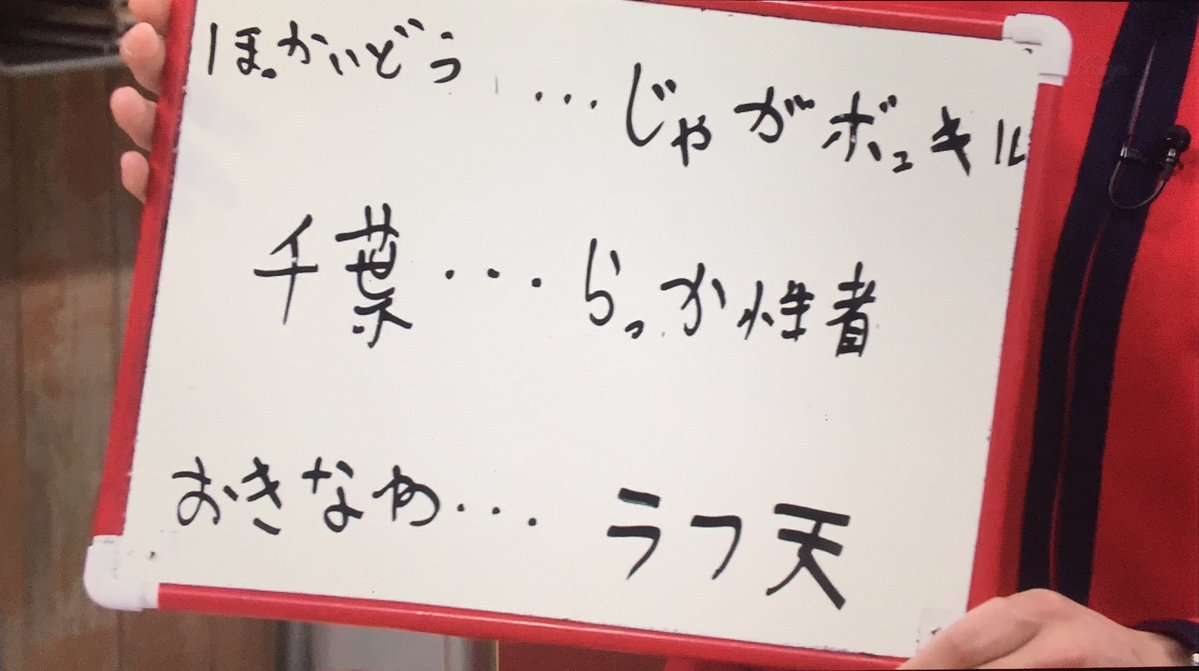 ほっかいどう...じゃがボュキル
千葉...らっか性者
おきなわ...ラフ天